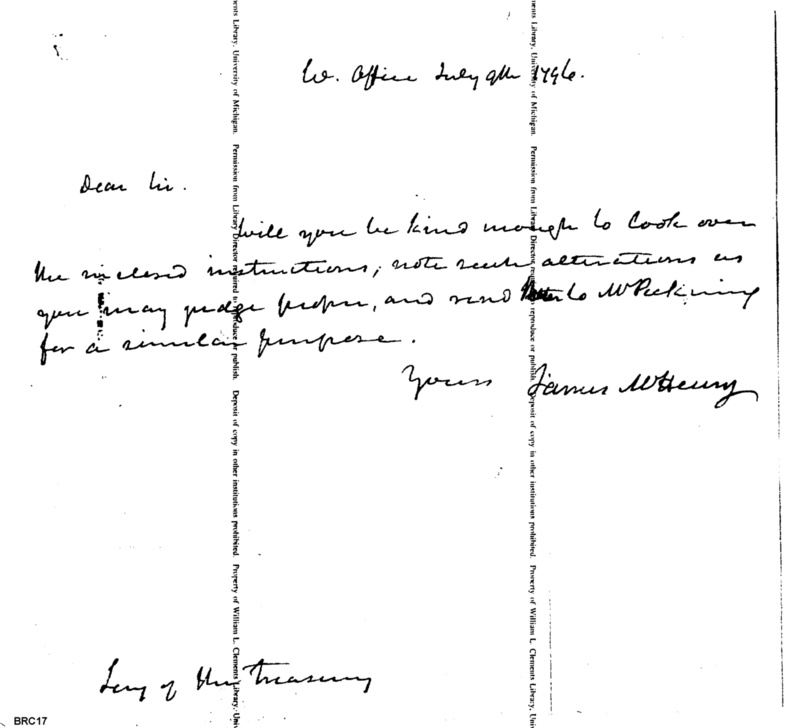 W. Office July 9th 1796.
Dear Sir.
Will you be kind enough to look over
the inclosed instructions, note such alterations as
you may judge proper, and send to Mr Pickering
for a similar purpose.
Yours James McHenry
Secy of the Treasury
BRC17
ments Library, University of Michigan. Permission from Library Director required to reproduce or publish. Deposit of copy in other institutions prohibited. Property of William L. Clements Library, Univ
ments Library, University of Michigan. Permission from Library Director required to reproduce or publish. Deposit of copy in other institutions prohibited. Property of William L. Clements Library, Uni